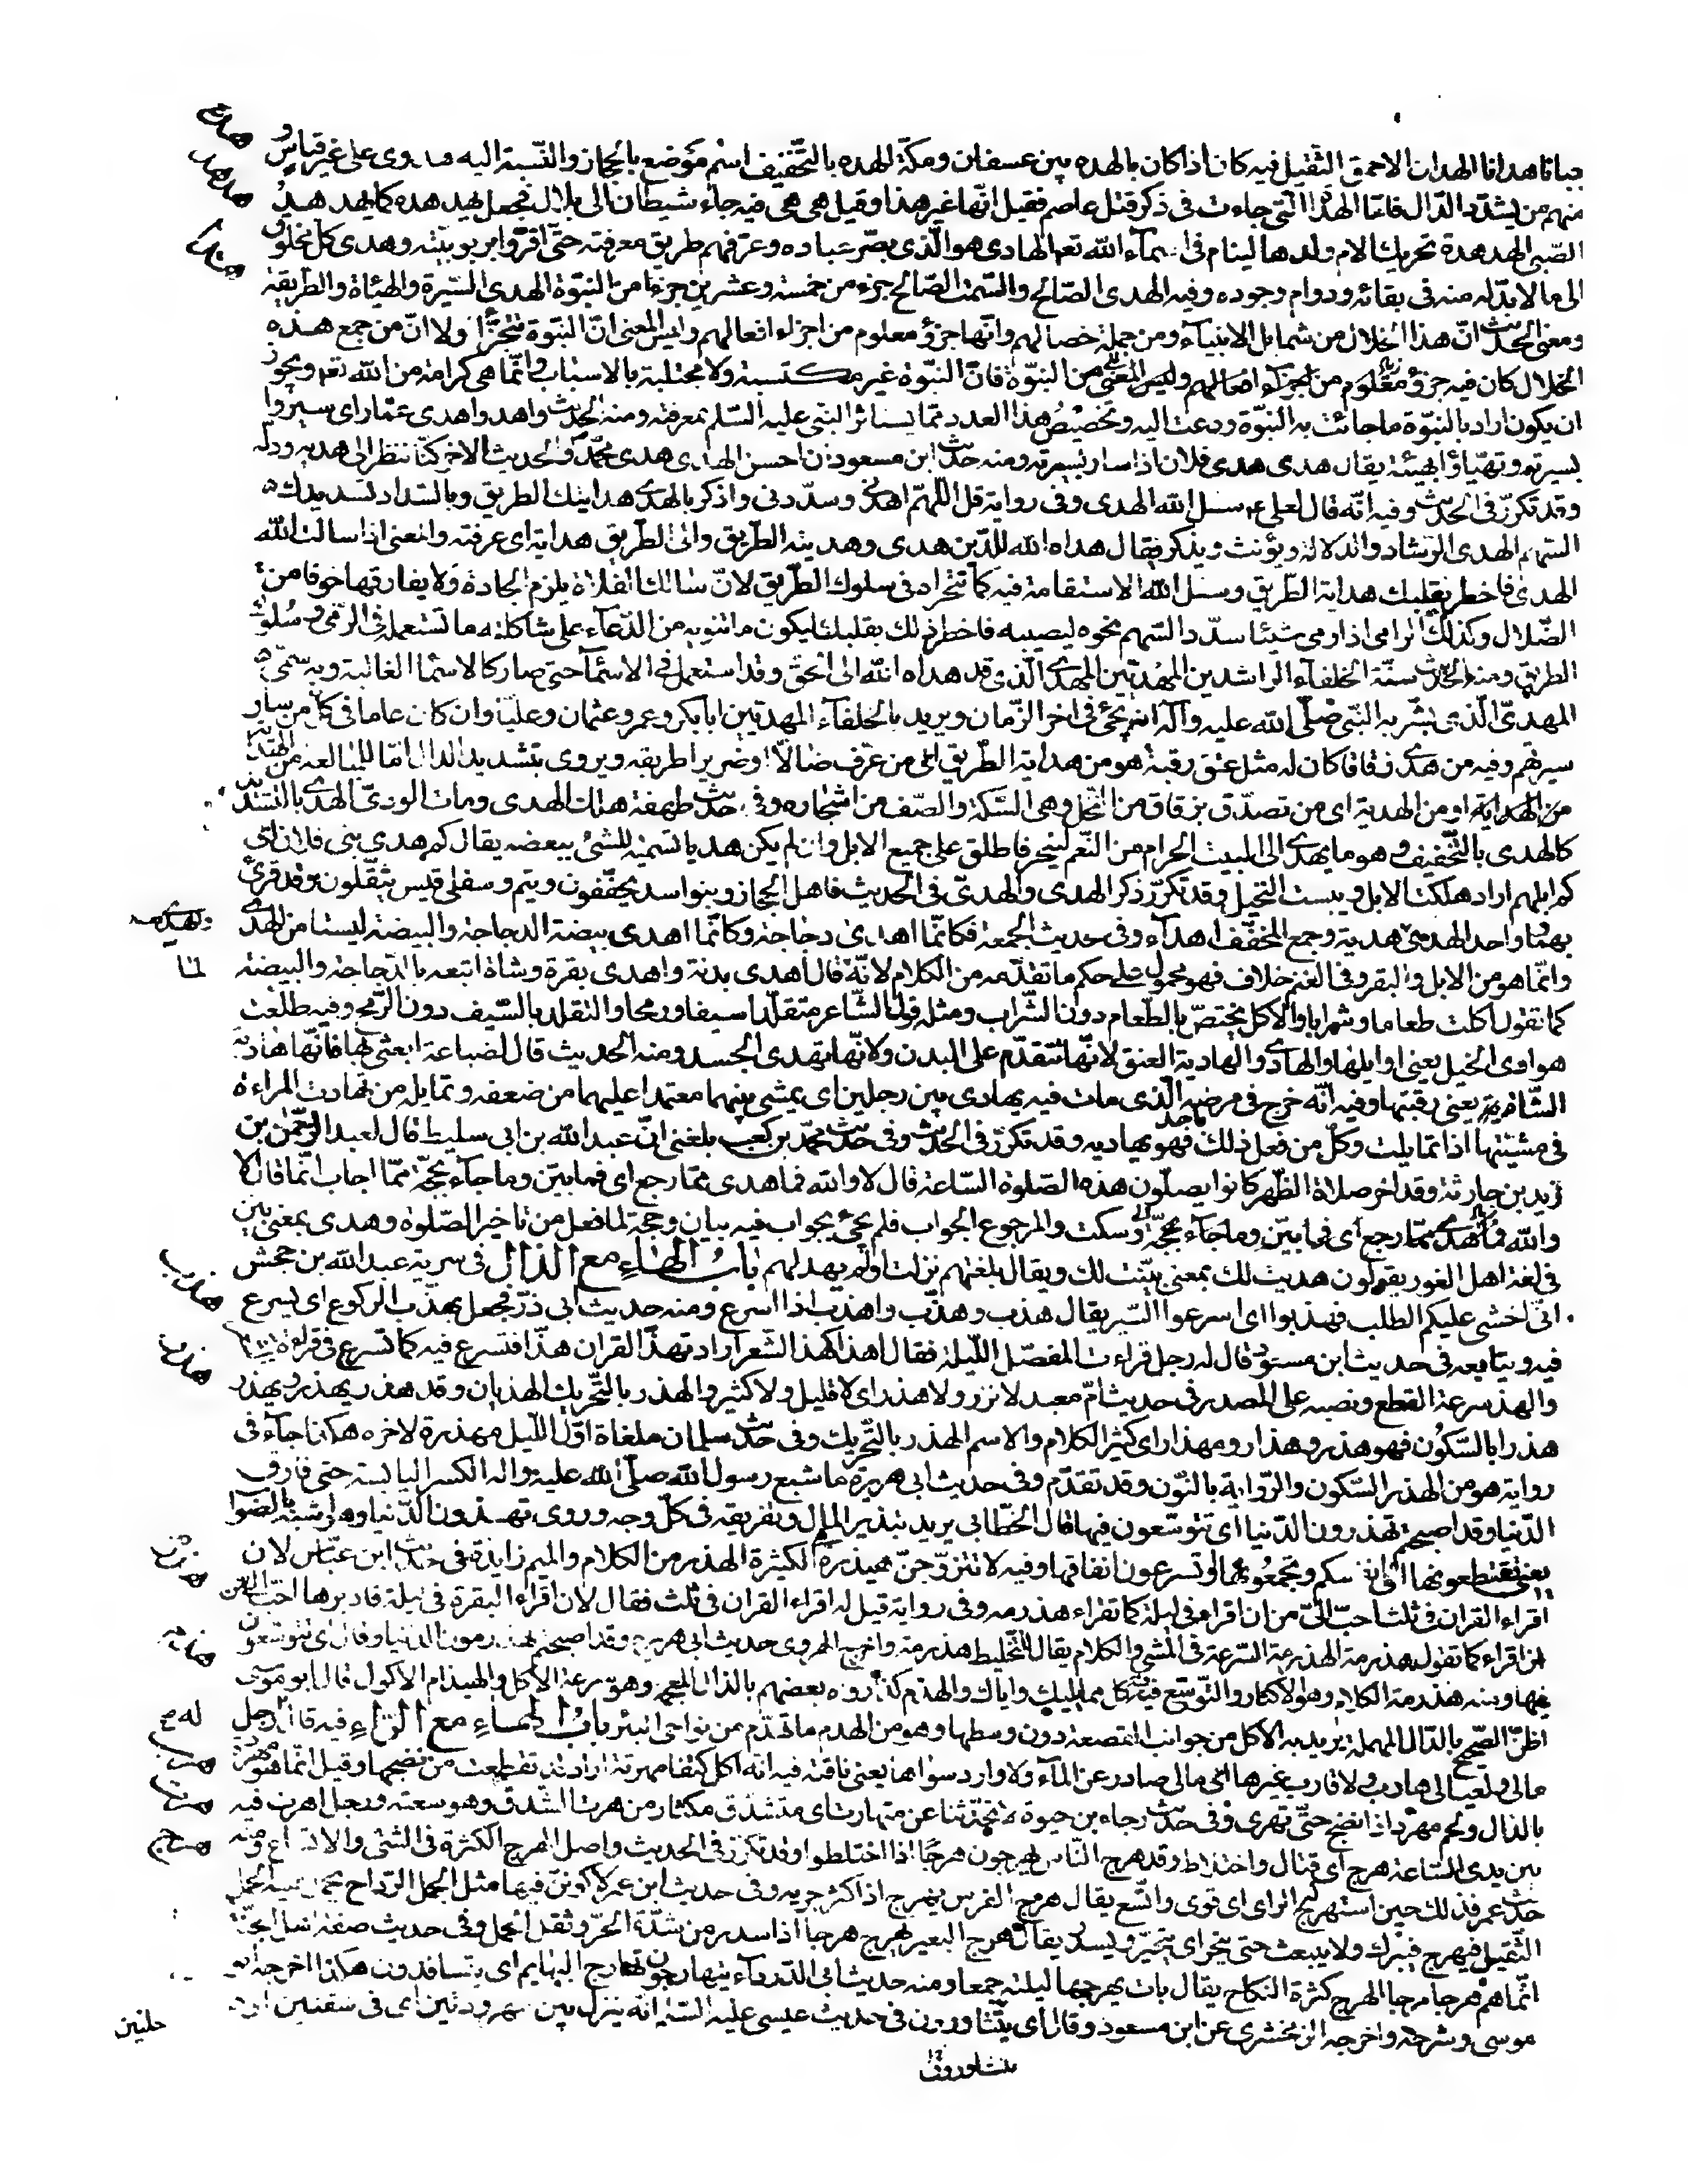 جبانا هدانا الهدان الاحمق الثقيل فيه كان اذا كان بالهده بين عسفان ومكة الهده بالتخفيف اسم موضع بالحجاز والنسبة اليه هدوى على غير قياس و
منهم من يشدد الدال فامّا الهداة التى جاءت فى ذكر قتل عاصم فقيل انّها غير هذا وقيل هى هى فيه جاء شيطان الى بلال فجعل يهدهده كما يهدهد
الصّبى الهدهدة تحريك الام ولدها لينام فى اسمآء الله تعم الهادى هو الّذى بصّر عباده وعرّفهم طريق معرفته حتّى اقرّوا بربوبيّته وهدى كل مخلوق
الى ما لابدّ له منه فى بقائه ودوام وجوده وفيه الهدى الصّالح والسّمت الصّالح جزء من خمسة وعشرين جزءا من النبوّة الهدى السّيرة والهيئاة والطريقة
ومعنى الحديث انّ هذا الخلال من شمايل الانبيآء ومن جملة خصالهم وانّها جزؤ معلوم من اجزاء افعالهم وليس المعنى انّ النبوّة تتجزّأ ولا انّ من جمع هذه
الخلال كان فيه جزؤ من النبوّة فانّ النبوّة غير مكتسبة ولا مجتلبة بالاسباب وانّما هى كرامة من الله تعم ويجوز
ان يكون اراد بالنبوّة ما جائت به النبوّة ودعت اليه وتخصيص هذا العدد ممّا يستاثر النبى عليه السّلم بمعرفته ومنه الحديث واهدوا هدى عمّار اى سيروا
بسيرته وتهيّاؤا بهيئته يقال هدى هدى فلان اذا سار بسيرته ومنه حديث ابن مسعود ان احسن الهدى هدى محمّد والحديث الاخر كنّا ننظر الى هديه ودلّه
وقد تكرّر فى الحديث وفيه انّه قال لعلى ع سل الله الهدى وفى رواية قل اللّهمّ اهدنى وسدّدنى واذكر بالهدى هدايتك الطريق وبالسّداد تسديدك
السّهم الهدى الرّشاد والدلالة ويؤنّث ويذكّر يقال هداه الله للدّين هدى وهديته الطّريق والى الطّريق هداية اى عرفته والمعنى اذا سالت الله
الهدى فاخطر بقلبك هداية الطّريق وسل الله الاستقامة فيه كما تتحراه فى سلوك الطّريق لانّ سالك الفلاة يلزم الجادة ولا يفارقها خوفا من
الضّلال وكذلك الرامى اذا رمى شيئا سدّد السّهم نحوه ليصيبه فاخطر ذلك بقلبك ليكون ما تنويه من الدّعآء على شاكلة ما تستعمله فى الرّمى وسلوك
الطريق ومنه الحديث سنّة الخلفآء الراشدين المهديّين المهدى الّذى قد هداه الله الى الحق وقد استعمل فى الاسمآء حتى صار كالاسمآء الغالبة وبه سمّى
المهدىّ الّذى بشّر به النّبى صلّى الله عليه وآله انه يجئ فى اخر الزّمان ويريد بالخلفآء المهديّين ابا بكر وعمر وعثمان وعليّا وان كان عاما فى كل من سار
سيرتهم وفيه من هدى زقاقا كان له مثل عتق رقبة هو من هداية الطّريق اى من عرّف ضالّا او ضريرا طريقه ويروى بتشديد الدال امّا للمبالغه من
الهداية او من الهدية اى من تصدّق بزقاق من النّخل وهى السّكة والصّف من اشجاره وفى حديث طهفة هلك الهدى ومات الودىّ الهدى بالتشديد
كالهدى بالتّخفيف وهو ما يهدى الى البيت الحرام من النّعم لينحر فاطلق على جميع الابل وان لم يكن هديا تسمية للشئ ببعضه يقال كم هدى بنى فلان اى
كم ابلهم اراد هلكت الابل ويبست النّخيل وقد تكرّر ذكر الهدى والهدىّ فى الحديث فاهل الحجاز وبنو اسد يخفّفون وتيم وسفلى قيس يثقّلون وقد قرئ
بهما وواحد الهدى هدية وجمع المخفّف اهدآء وفى حديث الجمعة فكانّما اهدى دجاجة وكانّما اهدى بيضة الدجاجة والبيضة ليستا من الهدى
وانّما هو من الابل والبقر وفى الغنم خلاف فهو محمول على حكم ما تقدّمه من الكلام لانّه قال اهدى بدنة واهدى بقرة وشاة اتبعه بالدّجاجة والبيضة
كما تقول اكلت طعاما وشرابا والاكل يختصّ بالطّعام دون الشّراب ومثله قول الشّاعر متقلّدا سيفا ورمحا والتقلّد بالسّيف دون الرّمح وفيه طلعت
هوادى الخيل يعنى اوايلها والهادى والهادية العنق لانّها تتقدّم على البدن ولانّها تهدى الجسد ومنه الحديث قال لضباعة ابعثى بها فانّها هادية
الشّاة يعنى رقبتها وفيه انّه خرج فى مرضه الّذى مات فيه يهادى بين رجلين اى يمشى بينهما معتمدا عليهما من ضعفه وتمايله من تهادت المراءة
فى مشيتها اذا تمايلت وكلّ من فعل ذلك باحد فهو يهاديه وقد تكرّر فى الحديث وفى حديث محمّد بن كعب بلغنى انّ عبد الله بن ابى سليط قال لعبد الرّحمن بن
زيد بن حارثة وقد اخر صلاة الظّهر كانوا يصلّون هذه الصّلوة السّاعة قال لا والله فما هدى ممّا رجع اى فما بيّن وما جآء بحجّة ممّا اجاب انّما قال لا
والله وسكت والمرجوع الجواب فلم يجئ بجواب فيه بيان وحجة لما فعل من تاخير الصّلوة وهدى بمعنى بيّن
فى لغة اهل الغور يقولون هديت لك بمعنى بيّنت لك ويقال بلغتهم نزلت اولم يهد لهم باب الهاء مع الذال فى سرية عبد الله بن جحش
انّى اخشى عليكم الطلب فهذبوا اى اسرعوا السّير يقال هذب وهذّب واهذب اذا اسرع ومنه حديث ابى ذرّ فجعل يهذب الركوع اى يسرع
فيه ويتابعه فى حديث ابن مسعود قال له رجل قراءت المفصّل اللّيلة فقال اهذا كهذ الشّعر اراد تهذّ القران هذّا فتسرع فيه كما تسرع فى قراءة
والهذ سرعة القطع ونصبه على المصدر فى حديث امّ معبد لا نزر ولا هذر اى لا قليل ولا كثير والهذر بالتّحريك الهذيان وقد هذر يهذر ويهذر
هذرا بالسّكون فهو هذر وهذار ومهذار اى كثير الكلام والاسم الهذر بالتّحريك وفى حديث سلمان ملغاة اوّل اللّيل مهذرة لاخره هكذا جآء فى
رواية هو من الهذر السّكون والرّواية بالنّون وقد تقدّم وفى حديث ابى هريرة ما شبع رسول الله صلّى الله عليه واله الكسر اليابسة حتى فارق
الدّنيا وقد اصبحتم تهذرون الدّنيا اى تتوسّعون فيها قال الخطّابى يريد تبذير المال وتفريقه فى كلّ وجه وروى تهذون الدّنيا وهو اشبه بالصّواب
يعنى تقتطعونها الى انفسكم وتجمعونها او تسرعون انفاقها وفيه لا تتزوّجنّ هيذرة الكثيرة الهذر من الكلام والميم زايدة فى حديث ابن عبّاس لان
اقراء القران فى ثلث احبّ الىّ من ان اقراه فى ليلة كما تقراء هذرمه وفى رواية قيل له اقراء القران فى ثلث فقال لان اقراء البقرة فى ليلة فادبرها احبّ الى من
ان اقراء كما تقول هذرمة الهذرمة السّرعة فى المشى والكلام يقال للتّخليط هذرمة واخرج الهروى حديث ابى هريرة وقد اصبحتم تهذرمون الدّنيا وقال اى تتوسّعون
فيها ومنه هذرمة الكلام وهو الاكثار والتّوسّع فيه كل مما يليك واياك والهذم كذا رواه بعضهم بالذال المعجمة وهو سرعة الاكل والهيذام الاكول قال ابو موسى
اظنّ الصّحيح بالدّال المهملة يريد به الاكل من جوانب القصعة دون وسطها وهو من الهدم ما تهدّم من نواحى البئر باب الهاء مع الرّاء فيه قال له رجل
مالى ولعيالى هارب ولا قارب غيرها اى مالى صادر عن المآء ولا وارد سواها يعنى ناقته فيه انّه اكل كتفا مهرتة اراد قد تقطعت من نضجها وقيل انّما هو مهردة
بالدال ولحم مهرّد اذا نضج حتّى تهرى وفى حديث رجاء بن حيوة لا تحدّثنا عن متهارت اى متشدّق مكثار من هرت الشّدق وهو سعته ورجل اهرت فيه
بين يدى السّاعة هرج اى قتال واختلاط وقد هرج النّاس يهرجون هرجا اذا اختلطوا وقد تكرّر فى الحديث واصل الهرج الكثرة فى الشئ والاتساع ومنه
حديث عمر فذلك حين استهرج له الراى اى قوى واتّسع يقال هرج الفرس يهرج اذا كثر جريه وفى حديث ابن عمر لاكوننّ فيها مثل الجمل الرّداح يحمل عليه الحمل
الثّقيل فيهرج فيبرك ولا ينبعث حتى ينحر اى يتحيّر ويسدر يقال هرج البعير يهرج هرجا اذا سدر من شدّة الحرّ وثقل الحمل وفى حديث صفة اهل الجنّة
انّما هم هرجا مرجا الهرج كثرة النكاح يقال بات يهرجها ليلته جمعا ومنه حديث ابى الدّرداء يتهارجون تهارج البهايم اى يتسافدون هكذا اخرجه ابو
موسى وشرحه واخرجه الزمخشرى عن ابن مسعود وقال اى يتثاورون فى حديث عيسى عليه السّلم انّه ينزل بين مهرودتين اى فى شقتين او
حلتين